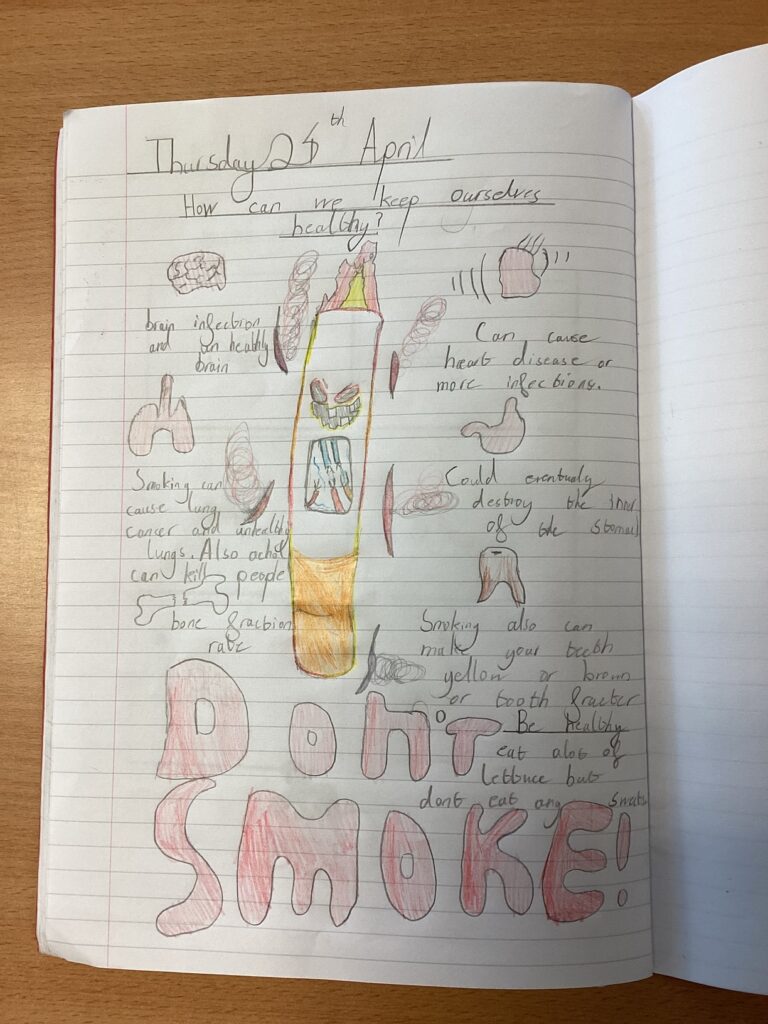 Thursday 25th April
How can we keep ourselves
healthy?
brain infection
and healthly
brain
Can cause
heart disease or
more infections.
Smoking can
cause lung
cancer and unhealthy
lungs. Also achol
can kill people
Could eventualy
destroy the inner
of the stomac
bone fraction
rate
Smoking also can
make your teeth
yellow or brown
or tooth fracter
Be healthy
eat alot of
lettuce but
dont eat any sweets
Don't
SMOKE!